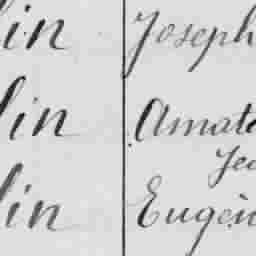 lin Joseph
lin Amat
Jea
lin Eugèn